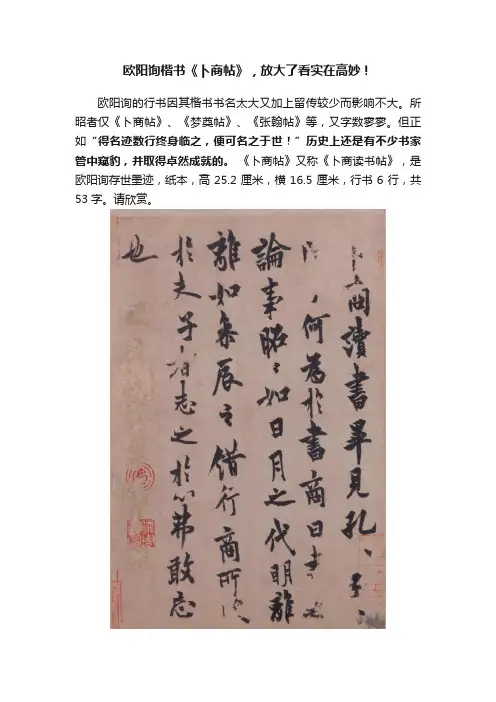 欧阳询楷书《卜商帖》，放大了看实在高妙！
欧阳询的行书因其楷书书名太大又加上留传较少而影响不大。所
昭者仅《卜商帖》、《梦奠帖》、《张翰帖》等，又字数寥寥。但正
如“得名迹数行终身临之，便可名之于世！”历史上还是有不少书家
管中窥豹，并取得卓然成就的。 《卜商帖》又称《卜商读书帖》，是
欧阳询存世墨迹，纸本，高 25.2 厘米，横 16.5 厘米，行书 6 行，共
53 字。请欣赏。
商讀書畢見孔子
何為於書商曰書
論事昭〻如日月之代明離
離如參辰之錯行商所
於夫子志之於心弗敢忘
也